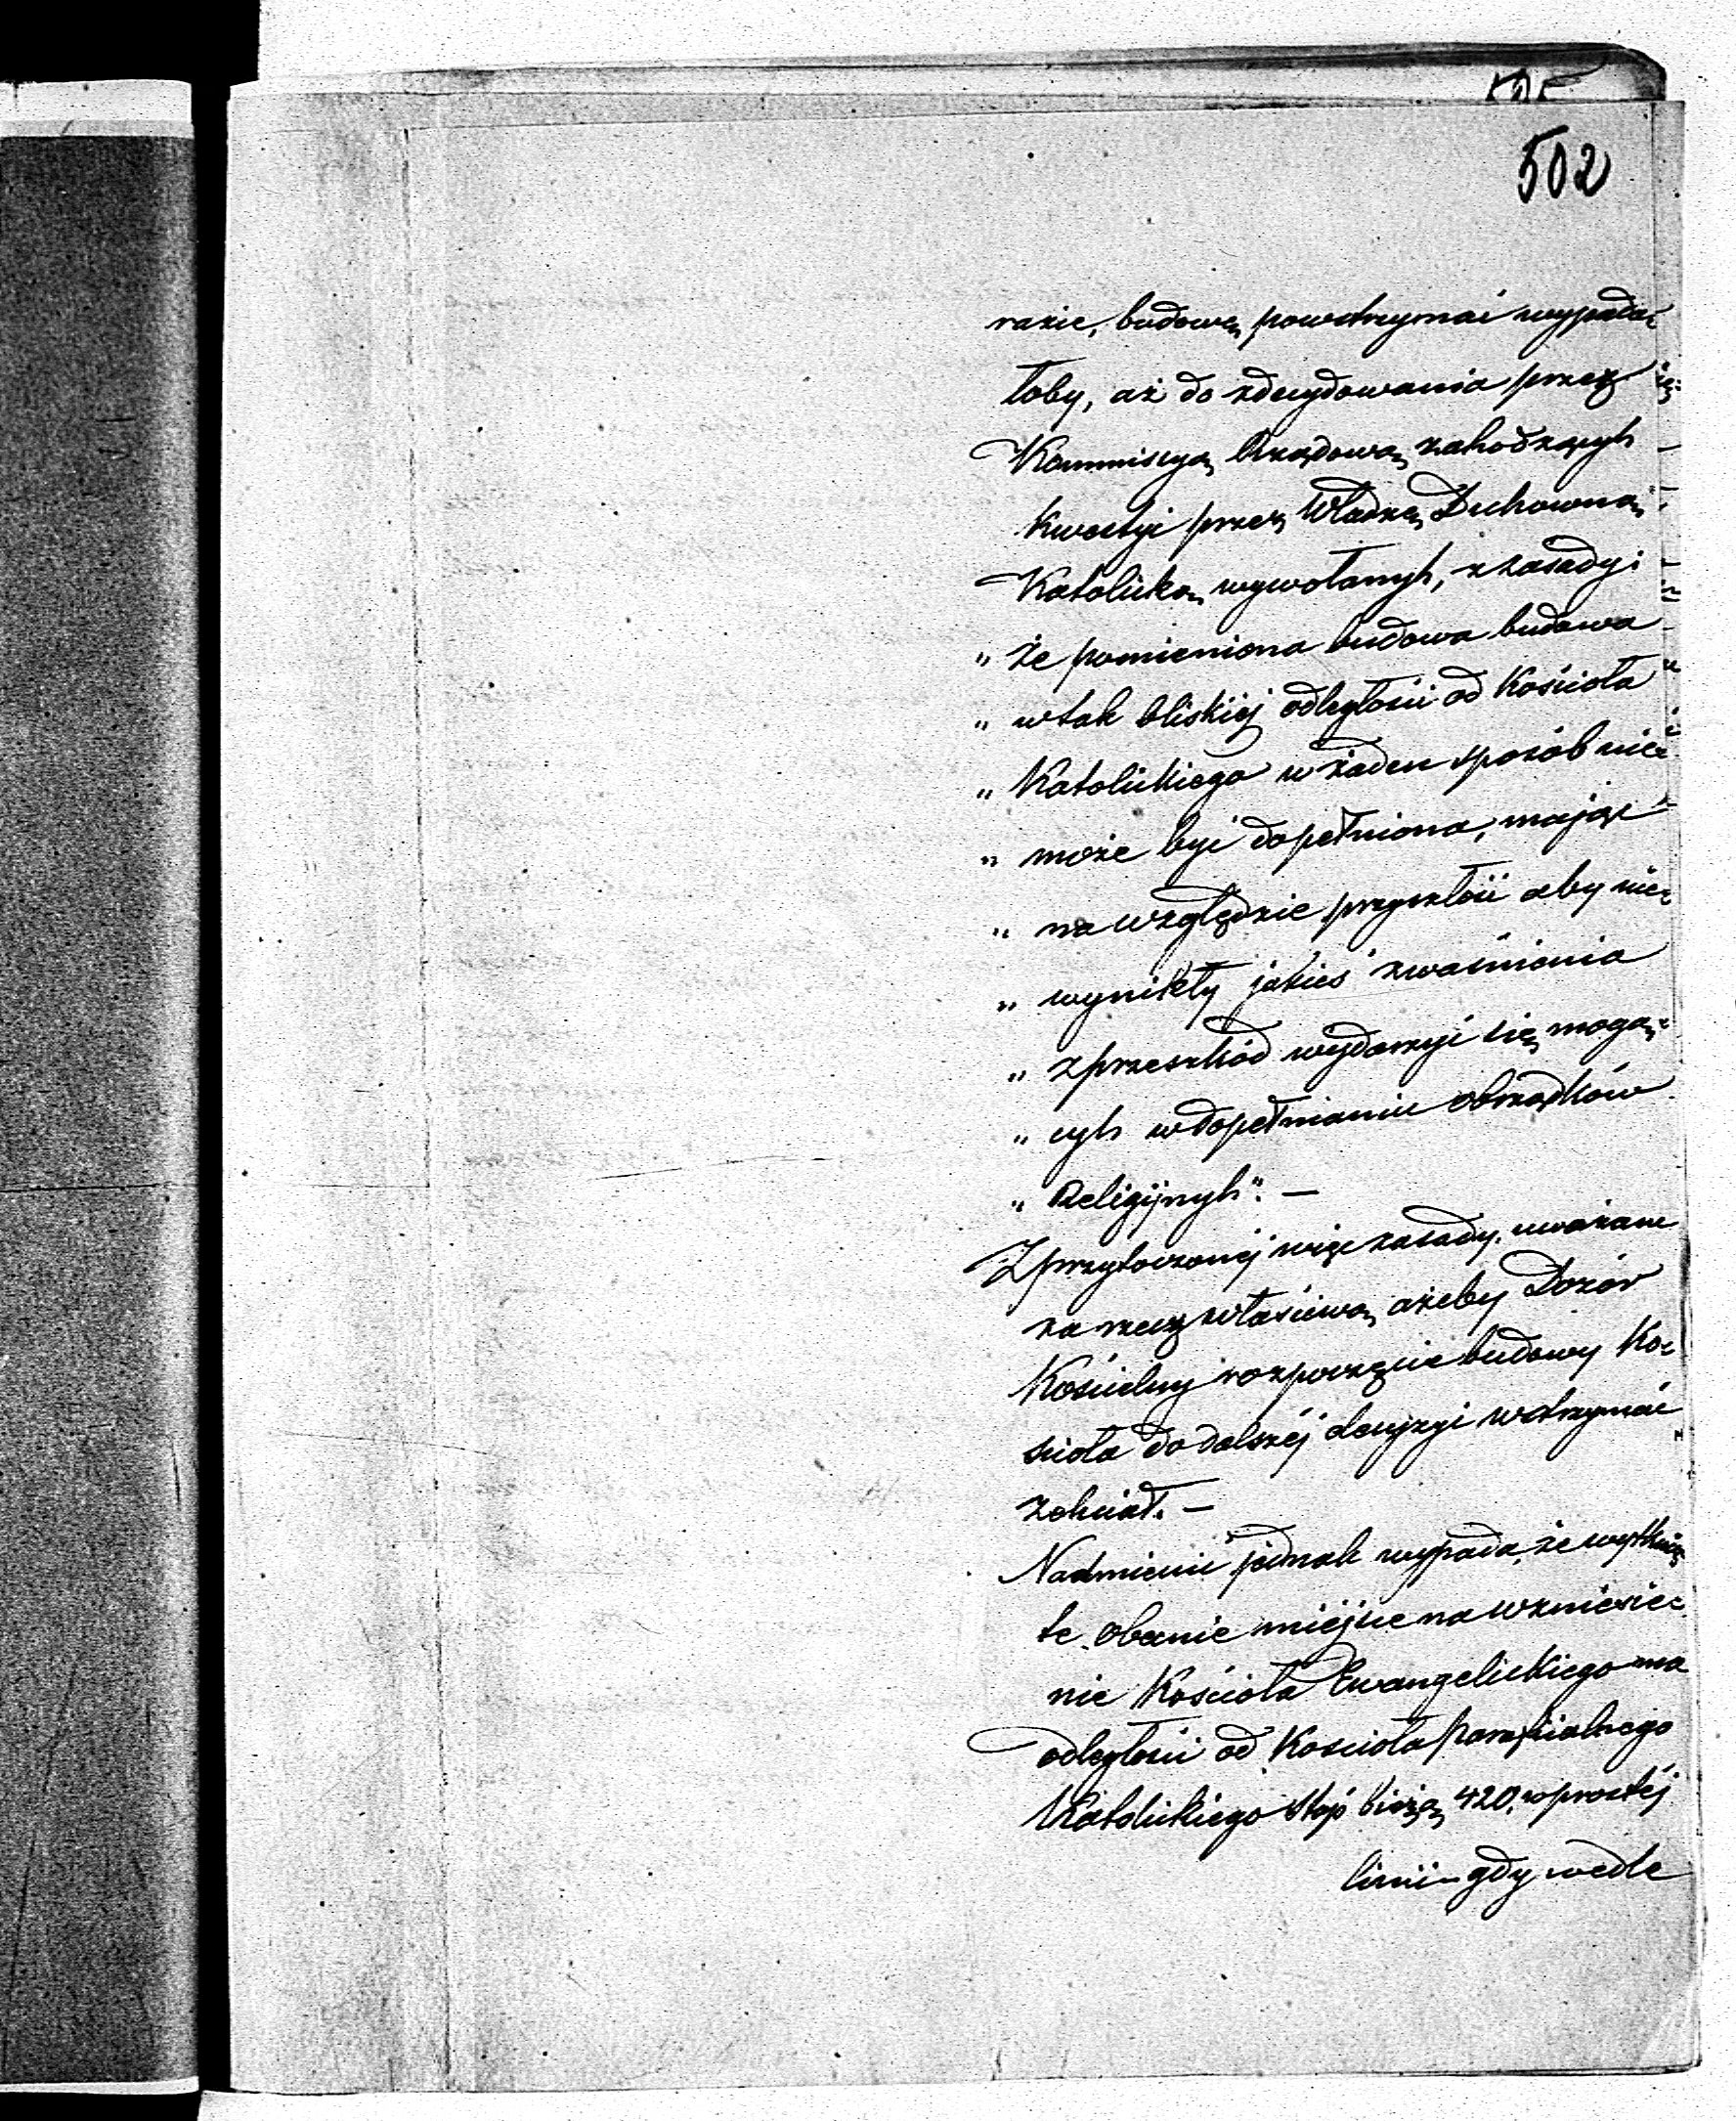 502
razie, budowę powstrzymać wypada=
łoby, aż do zdecydowania przez
Kommissyą Rządową zachodzących
kwestyi przez Władzę Duchowną
Katolicką wywołanych, z zasady:
„ że pomieniona budowa budowa
„ w tak bliskiéj odległości od Kościoła
„ Katolickiego w żaden sposób nie=
„ może być dopełniona, mając
„ na względzie przyszłość aby nie=
„ wynikły jakieś zwaśnienia
„ z przeszkód wydarzyć się mogą=
„ cych w dopełnianiu obrządków
„ Religijnych". —
Z przytoczonéj więc zasady, uważam
za rzecz właściwą ażeby Dozór
Kościelny rozpoczęcie budowy Ko=
ścioła do dalszéj decyzyi wstrzymać
zechciał. —
Nadmienić jednak wypada, że wytknię=
te obecnie miéjsce na wzniesie=
nie Kościoła Ewangelickiego ma
odległości od Kościoła parafialnego
Katolickiego stóp bieżą 420, w prostéj
linii – gdy wedle